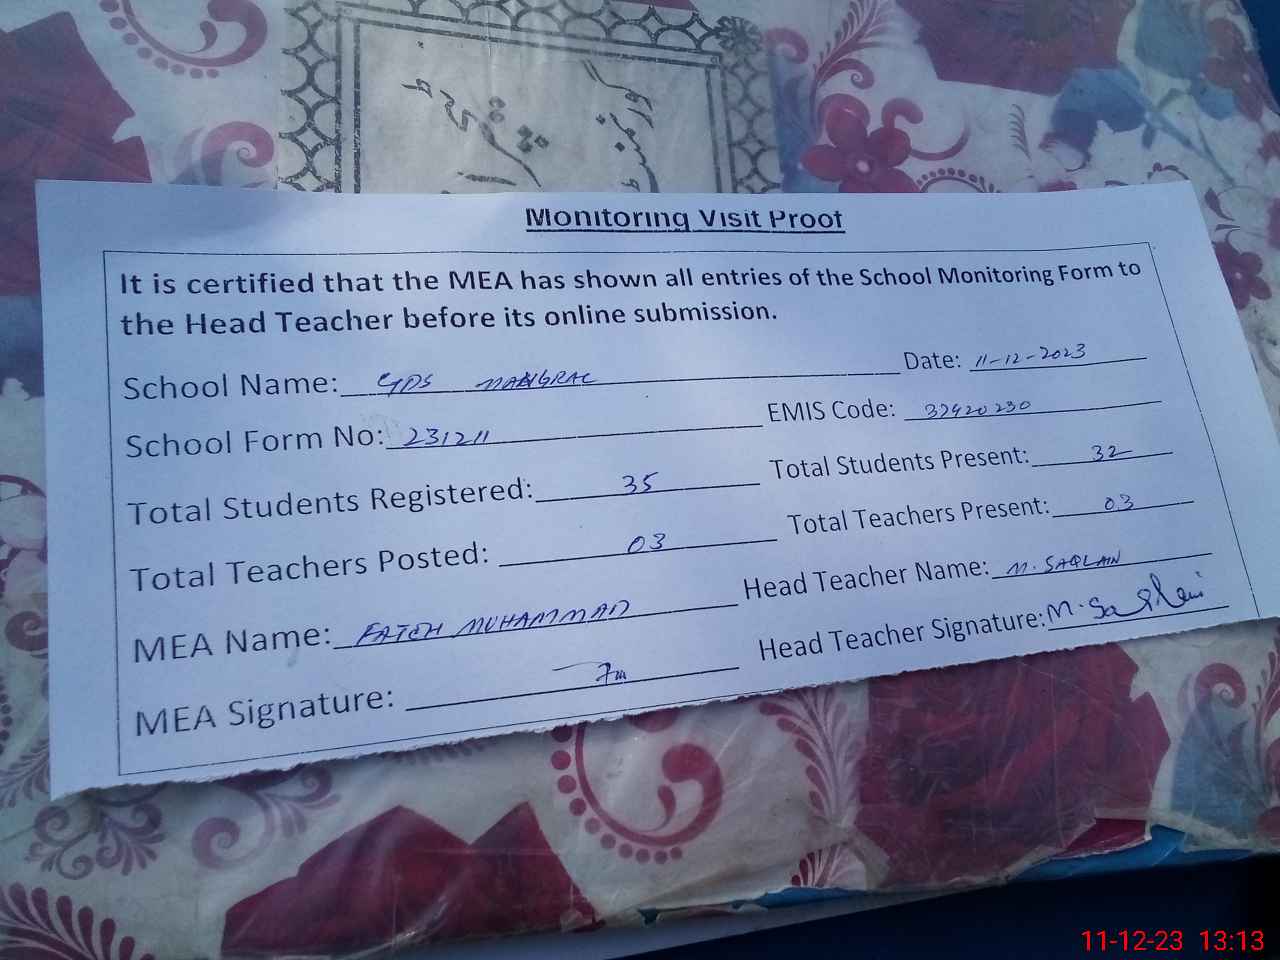 Monitoring Visit Proof
It is certified that the MEA has shown all entries of the School Monitoring Form to
the Head Teacher before its online submission.
School Name: GPS Date: 11-12-2023
School Form No: 231211 EMIS Code: 32420230
Total Students Registered: 35 Total Students Present: 32
Total Teachers Posted: 03 Total Teachers Present: 03
MEA Name: FATEH MUHAMMAD Head Teacher Name: M. SAQLAIN
MEA Signature: Fm Head Teacher Signature: M. Saqlain
11-12-23 13:13